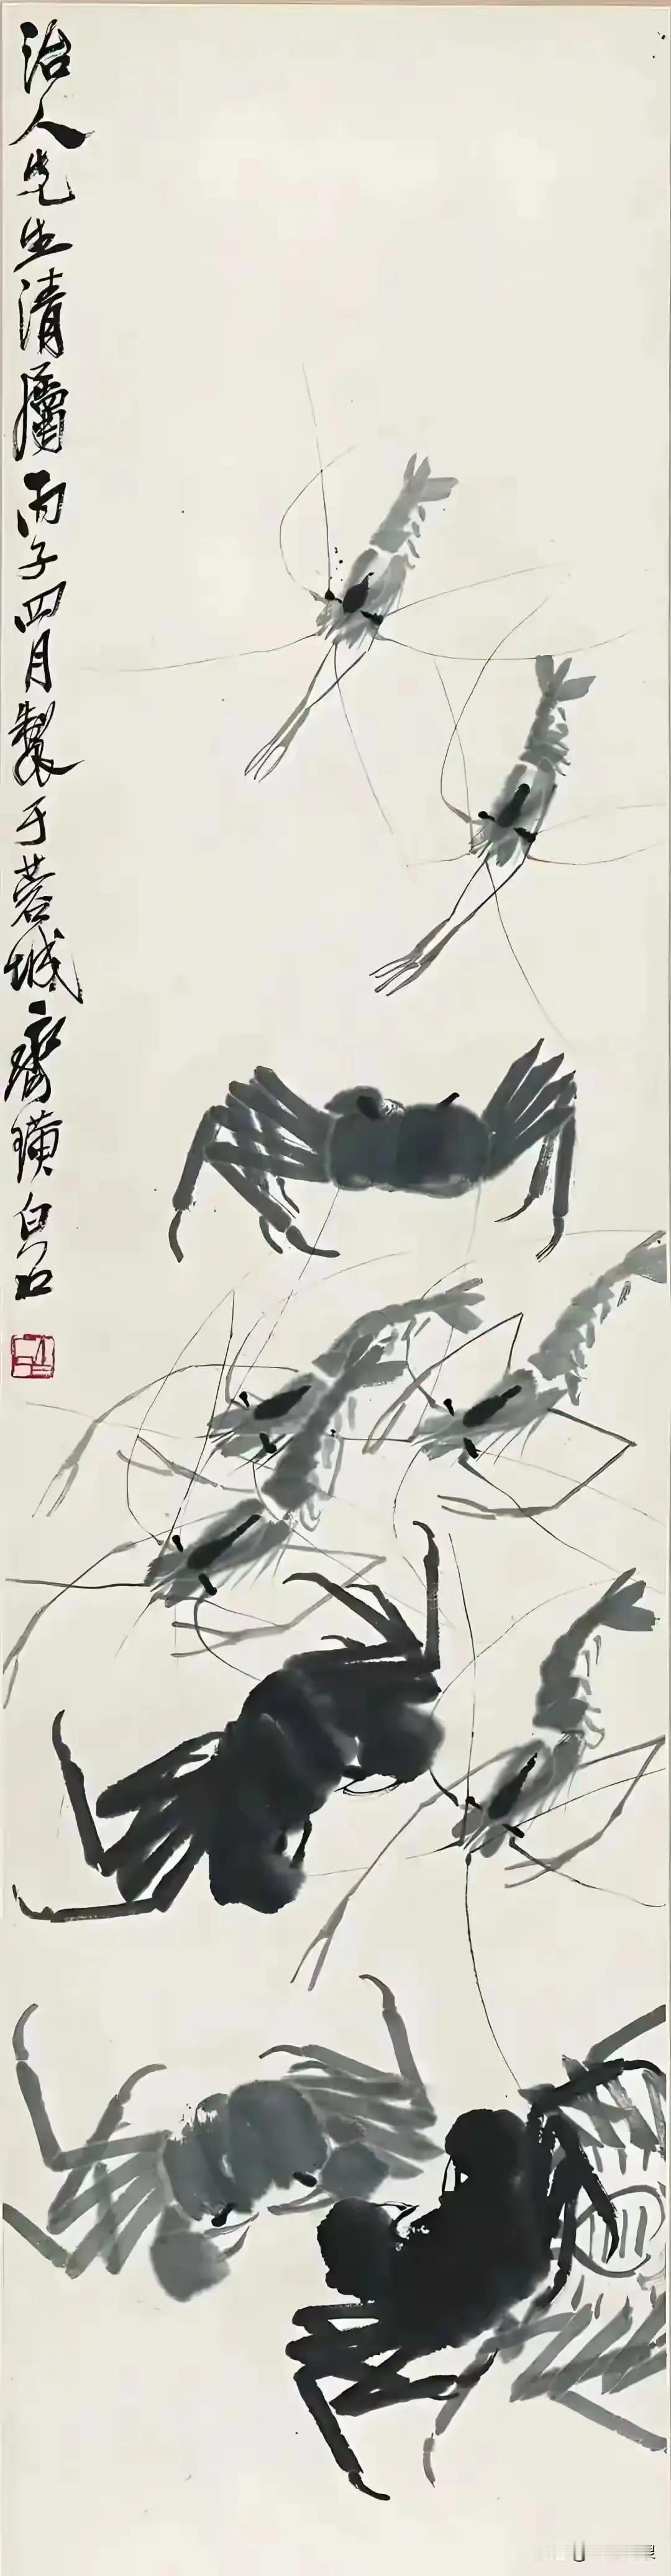 治人先生清属丙子四月製于蓉城齊璜白石